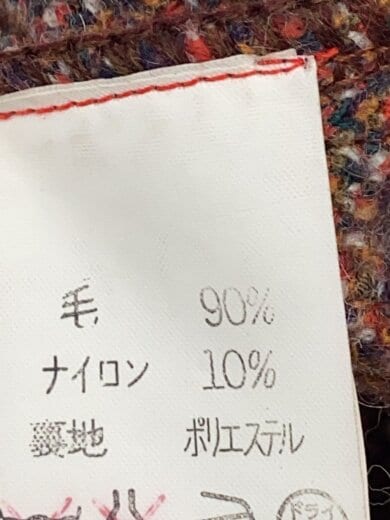 毛 90%
ナイロン 10%
裏地 ポリエステル
ドライ